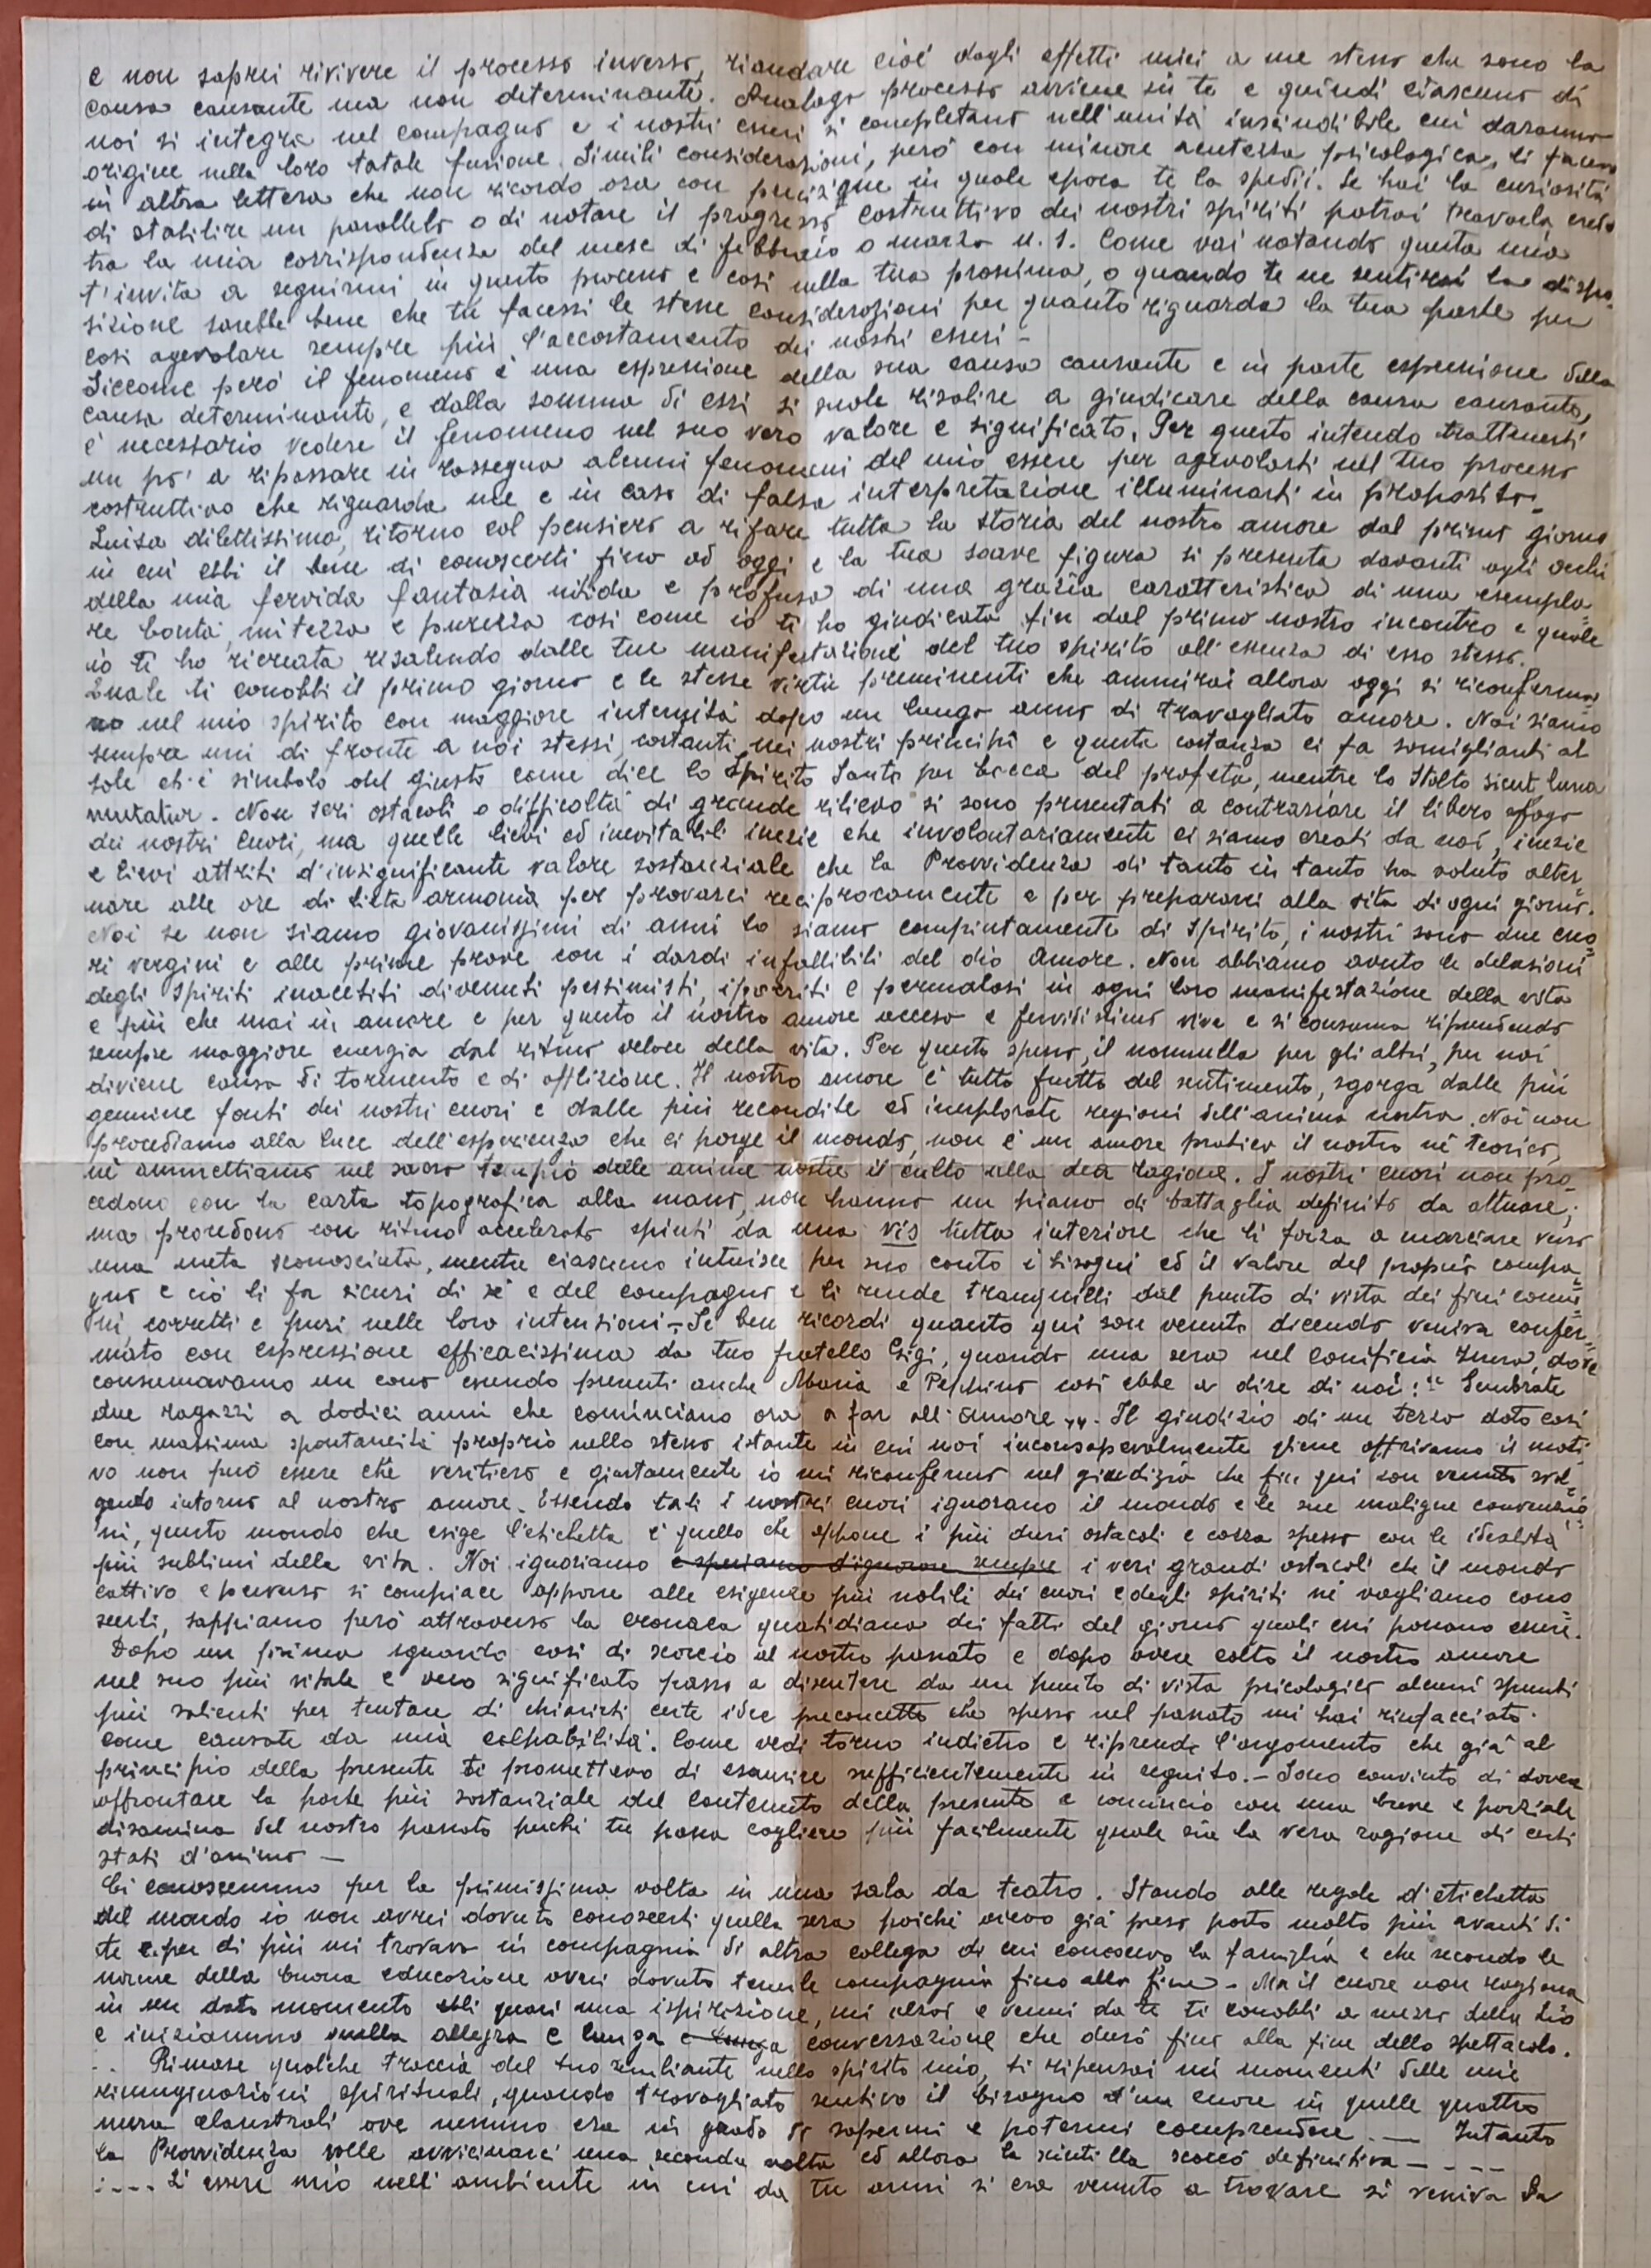 e non saprei rivivere il processo inverso, riandare cioè dagli effetti miei a me stesso che sono la
causa causante ma non determinante. Analogo processo avviene in te e quindi ciascuno di
noi si integra nel compagno e i nostri esseri si completano nell'unità inscindibile cui daranno
origine nella loro totale fusione. Simili considerazioni, però con minore acutezza psicologica, ti facevo
in altra lettera che non ricordo ora con precisione in quale epoca te la spedii. Se hai la curiosità
di stabilire un parallelo o di notare il progresso costruttivo dei nostri spiriti potrai trovarla credo
tra la mia corrispondenza del mese di febbraio o marzo u. s. Come vai notando questa mia
t'invita a seguirmi in questo processo e così nella tua prossima, o quando te ne sentirai la dispo=
sizione sarebbe bene che tu facessi le stesse considerazioni per quanto riguarda la tua parte per
così agevolare sempre più l'accostamento dei nostri esseri -
Siccome però il fenomeno è una espressione della sua causa causante e in parte espressione della
causa determinante, e dalla somma di essi si suole risalire a giudicare della causa causante,
è necessario vedere il fenomeno nel suo vero valore e significato. Per questo intendo trattenerti
un po' a ripassare in rassegna alcuni fenomeni del mio essere per agevolarti nel tuo processo
costruttivo che riguarda me e in caso di falsa interpretazione illuminarti in proposito.
Luisa dilettissima, ritorno col pensiero a rifare tutta la storia del nostro amore dal primo giorno
in cui ebbi il bene di conoscerti fino ad oggi e la tua soave figura si presenta davanti agli occhi
della mia fervida fantasia nitida e profusa di una grazia caratteristica di una esempla=
re bontà, mitezza e purezza così come io ti ho giudicata fin dal primo nostro incontro e quale
io ti ho ricreata risalendo dalle tue manifestazioni del tuo spirito all'essenza di esso stesso.
Quale ti conobbi il primo giorno e le stesse virtù preminenti che ammirai allora oggi si riconferma
no nel mio spirito con maggiore intensità dopo un lungo anno di travagliato amore. Noi siamo
sempre uni di fronte a noi stessi, costanti nei nostri principî e questa costanza ci fa somiglianti al
sole ch'è simbolo del giusto come dice lo Spirito Santo per bocca del profeta, mentre lo stolto sicut luna
mutatur. Non seri ostacoli o difficoltà di grande rilievo si sono presentati a contrariare il libero sfogo
dei nostri cuori, ma quelle lievi ed inevitabili inezie che involontariamente ci siamo creati da noi, inezie
e lievi attriti d'insignificante valore sostanziale che la Provvidenza di tanto in tanto ha voluto alter=
nare alle ore di lieta armonia per provarci reciprocamente e per prepararci alla vita di ogni giorno.
Noi se non siamo giovanissimi di anni lo siamo compiutamente di spirito, i nostri sono due cuo=
ri vergini e alle prime prove con i dardi infallibili del dio Amore. Non abbiamo avuto le delusioni
degli spiriti inacetiti divenuti pessimisti, ipocriti e permalosi in ogni loro manifestazione della vita
e più che mai in amore e per questo il nostro amore acceso e fervidissimo vive e si consuma riprendendo
sempre maggiore energia dal ritmo veloce della vita. Per questo spesso, il nonnulla per gli altri, per noi
diviene causa di tormento e di afflizione. Il nostro amore è tutto frutto del sentimento, sgorga dalle più
genuine fonti dei nostri cuori e dalle più recondite ed inesplorate regioni dell'anima nostra. Noi non
procediamo alla luce dell'esperienza che ci porge il mondo, non è un amore pratico il nostro né teorico,
né ammettiamo nel sacro tempio delle anime nostre il culto alla dea ragione. I nostri cuori non pro=
cedono con la carta topografica alla mano, non hanno un piano di battaglia definito da attuare;
ma procedono con ritmo accelerato spinti da una vis tutta interiore che li forza a marciare verso
una meta sconosciuta, mentre ciascuno intuisce per suo conto i bisogni ed il valore del proprio compa=
gno e ciò li fa sicuri di sé e del compagno e li rende tranquilli dal punto di vista dei fini comu=
ni, corretti e puri nelle loro intenzioni. Se ben ricordi quanto qui son venuto dicendo veniva confer=
mato con espressione efficacissima da tuo fratello Gigi, quando una sera nel dove
consumavamo un cono essendo presenti anche Maria e Peppino così ebbe a dire di noi: "Sembrate
due ragazzi a dodici anni che cominciano ora a far all'amore". Il giudizio di un terzo dato così
con massima spontaneità proprio nello stesso istante in cui noi inconsapevolmente gliene offrivamo il moti=
vo non può essere che veritiero e giustamente io mi riconfermo nel giudizio che fin qui son venuto svol=
gendo intorno al nostro amore. Essendo tali i nostri cuori ignorano il mondo e le sue maligne convenzio=
ni, questo mondo che esige l'etichetta è quello che oppone i più duri ostacoli e cozza spesso con le idealità
più sublimi della vita. Noi ignoriamo e speriamo d'ignorare sempre i veri grandi ostacoli che il mondo
cattivo e perverso si compiace opporre alle esigenze più nobili dei cuori e degli spiriti né vogliamo cono=
scerli, sappiamo però attraverso la cronaca quotidiana dei fatti del giorno quali essi possono essere.
Dopo un primo sguardo così di scorcio al nostro passato e dopo avere colto il nostro amore
nel suo più vitale e vero significato passo a discutere da un punto di vista psicologico alcuni spunti
più salienti per tentare di chiarirti certe idee preconcette che spesso nel passato mi hai rinfacciato
come causate da mia colpabilità. Come vedi torno indietro e riprendo l'argomento che già al
principio della presente ti promettevo di esaurire sufficientemente in seguito. - Sono convinto di dover
affrontare la parte più sostanziale del contenuto della presente e comincio con una breve e parziale
disamina del nostro passato perché tu possa cogliere più facilmente quale sia la vera ragione di certi
stati d'animo —
Ci conoscemmo per la primissima volta in una sala da teatro. Stando alle regole d'etichetta
del mondo io non avrei dovuto conoscerti quella sera poiché avevo già preso posto molto più avanti di
te e per di più mi trovavo in compagnia di altra collega di cui conoscevo la famiglia e che secondo le
norme della buona educazione avrei dovuto tenerle compagnia fino alla fine - Ma il cuore non ragiona
in un dato momento ebbi quasi una ispirazione, mi alzai e venni da te ti conobbi a mezzo della Zia
e iniziammo quella allegra e lunga e lunga conversazione che durò fino alla fine dello spettacolo.
.. Rimase qualche traccia del tuo sembiante nello spirito mio, ti ripensai nei momenti delle mie
rimuginazioni spirituali, quando travagliato sentivo il bisogno d'un cuore in quelle quattro
mura claustrali ove nessuno era in grado di sapermi e potermi comprendere. — Intanto
la Provvidenza volle avvicinarci una seconda volta ed allora la scintilla scoccò definitiva - - - -
: - - - - L'essere mio nell'ambiente in cui da tre anni si era venuto a trovare si veniva da